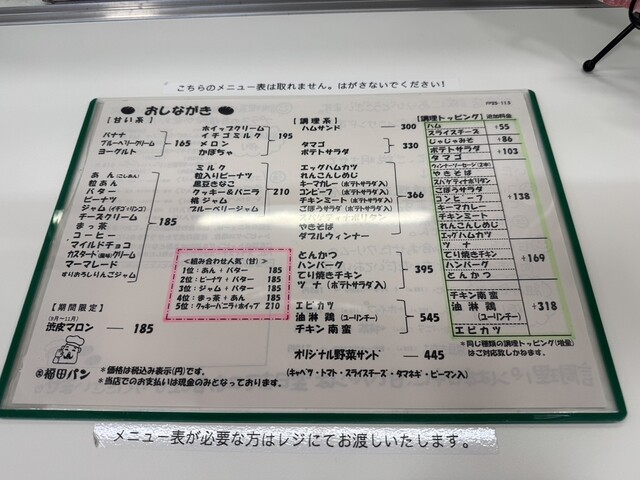 こちらのメニュー表は取れません。はがさないでください!
おしながき
[甘い系]
バナナ
ブルーベリークリーム 165
ヨーグルト
あん(こしあん)
粒あん
バター
ピーナツ
ジャム(イチゴ/リンゴ)
チーズクリーム 185
まっ茶
コーヒー
マイルドチョコ
カスタード(風味)クリーム
マーマレード
すりおろしりんごジャム
[期間限定]
(9月～11月)
渋皮マロン 185
ホイップクリーム
イチゴミルク 195
メロン
かぼちゃ
ミルク
粒入りピーナツ
黒豆きなこ
クッキー&バニラ 210
桃ジャム
ブルーベリージャム
<組み合わせ人気(甘)>
1位:あん+バター 185
2位:ピーナツ+バター 185
3位:ジャム+バター 185
4位:まっ茶+あん 185
5位:クッキーバニラ+ホイップ 210
[調理系]
ハムサンド 300
タマゴ 330
ポテトサラダ
エッグハムカツ
れんこんしめじ
キーマカレー(ポテトサラダ入)
コンビーフ(ポテトサラダ入)
チキンミート(ポテトサラダ入) 366
ごぼうサラダ(ポテトサラダ入)
スパゲティナポリタン
やきそば
ダブルウィンナー
とんかつ
ハンバーグ 395
てり焼きチキン
ツナ(ポテトサラダ入)
エビカツ
油淋鶏(ユーリンチー) 545
チキン南蛮
オリジナル野菜サンド 445
(キャベツ・トマト・スライスチーズ・タマネギ・ピーマン入)
[調理トッピング]追加料金
ハム +55
スライスチーズ
じゃじゃみそ +86
ポテトサラダ +103
タマゴ
やきそば
スパゲティナポリタン
ごぼうサラダ
コンビーフ +138
キーマカレー
チキンミート
れんこんしめじ
エッグハムカツ
ツナ
てり焼きチキン +169
ハンバーグ
とんかつ
チキン南蛮
油淋鶏 +318
(ユーリンチー)
エビカツ
*同じ種類の調理トッピング(増量)
はご対応致しかねます。
福田パン
*価格は税込み表示(円)です。
*当店でのお支払いは現金のみとなっております。
メニュー表が必要な方はレジにてお渡しいたします。